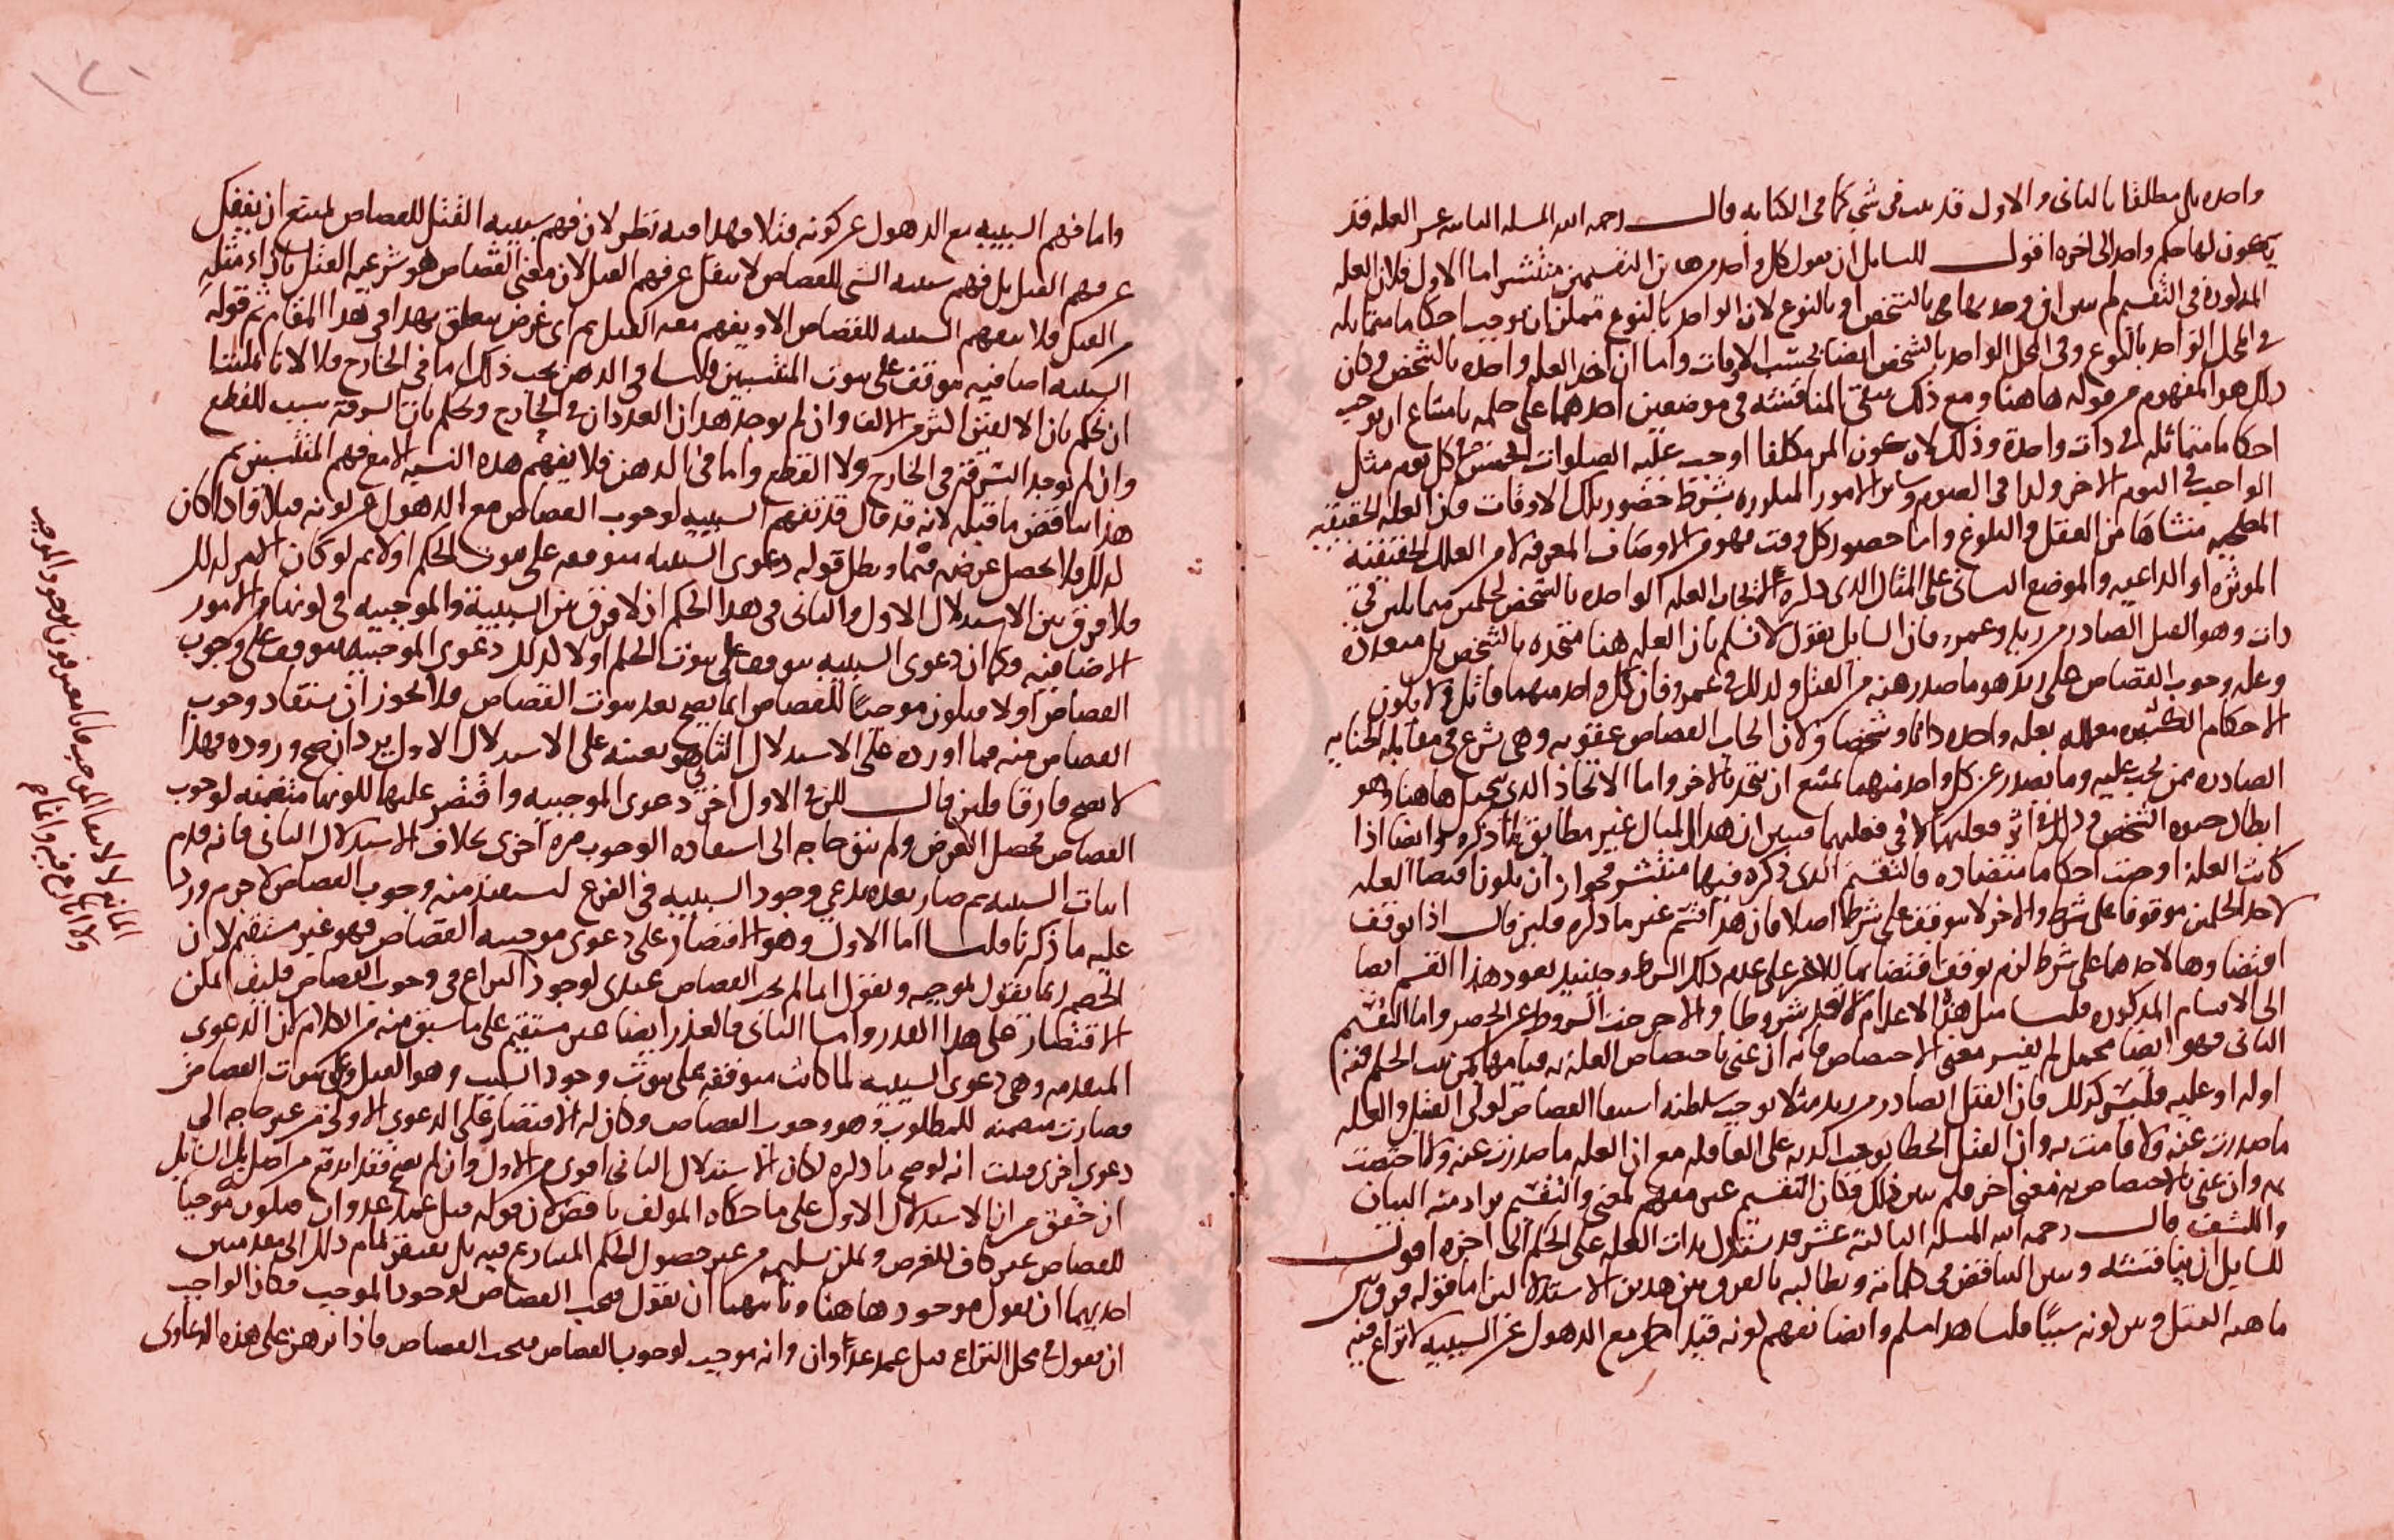 واحده بل مطلقا بالثانى والاول قد يثبت فى شى كما فى الكتابه قال رحمه الله المسله الثانيه عشر العله قد
يكون لها حكم واحد الى اخره اقول للسايل ان يقول كل واحد من هاتين التقسيمين منتشر اما الاول فلان العله
المذكورة فى التقسيم لم يبين ان وحدتها هى بالشخص او بالنوع لان الواحد بالنوع يمكن ان يوجب احكاما متماثله
فى المحل الواحد بالنوع وفى المحل الواحد بالشخص ايضا بحسب الاوقات واما ان اخذ العله واحده بالشخص وكان
ذلك هو المفهوم من قوله هاهنا ومع ذلك تبقى المناقشه فى موضعين احدهما على حكمه بامتناع ان يوجب
احكاما متماثله فى ذات واحدة وذلك لان كون المر مكلفا اوجب عليه الصلوات الخمس فى كل يوم مثل
الواجب فى اليوم الاخر وكذا فى الصوم وساير الامور المتكررة بشرط حضور تلك الاوقات فان العله الحقيقيه
منشاها من العقل والبلوغ واما حضور كل وقت فهو من الاوصاف المعرفه لا من العلل الحقيقيه
الموثره او الداعيه والموضع الثانى على المثال الذى ذكره لايجاب العله الواحده بالشخص لحكمين متماثلين فى
ذات وهو القتل الصادر من زيد وعمرو فان السايل يقول لا نسلم بان العله هنا متحده بالشخص بل متعددة
وعله وجوب القصاص على زيد هو ما صدر عنه من القتل وكذلك فى عمرو فان كل واحد منهما قاتل ولا يكون
الاحكام الكثيره معلله بعله واحده ذاتا وشخصا ولان ايجاب القصاص عقوبه وهى شرع فى مقابله الجنايه
الصادره ممن يجب عليه وما يصدر عن كل واحد منهما يمتنع ان يتحد بالاخر واما الاتحاد الذى يتخيل هاهنا وهو
ابطال حيوه الشخص فذلك فى اثر فعليهما لا فى فعليهما فتبين ان هذا المثال غير مطابق لما ذكره وايضا اذا
كانت العلة اوجبت احكاما متضاده فالتقسيم الذى ذكره فيها منتشر لجواز ان يكون اقتضا العله
لاحد الحكمين موقوفا على شرط والاخر لا يتوقف على شرط اصلا فان هذا قسم غير ما ذكره فلين قال اذا توقف
اقتضاوها لاحدهما على شرط لزم توقف اقتضايها للاخر على عدم ذلك الشرط وحينيذ يعود هذا القسم ايضا
الى الاقسام المذكوره قلنا مثل هذه الاعدام لا تعد شروطا والا خرجت الشروط عن الحصر واما التقسيم
الثانى فهو ايضا مجمل لم يفسر معنى الاختصاص فانه ان عنى باختصاص العله به قيامها بمن يثبت الحكم فيه
او له او عليه فليس كذلك فان القتل الصادر من زيد مثلا يوجب سلطنه استيفا القصاص لولى القتيل والعله
ما صدرت عنه ولا قامت به وان القتل الخطا يوجب الديه على العاقله مع ان العله ما صدرت عنه ولا اختصت
به وان عنى بالاختصاص به معنى اخر فلم يبين ذلك فكان التقسيم غير مفهم لمعنى والتقسيم يراد منه البيان
والكشف قال رحمه الله المسله الثالثة عشر قد يستدل بذات العله على الحكم الى اخره اقول
للسايل ان يناقشه ويبين التناقض فى كلماته ويطالبه بالفرق بين هذين الاستدلالين اما قوله فرق بين
ماهيه القتل وبين كونه سببا قلنا هذا مسلم وايضا تفهم كونه قتلا مع الذهول عن السببيه لا نزاع فيه
واما فهم السببيه مع الذهول عن كونه قتلا فهذا فيه نظر لان فهم سببيه القتل للقصاص يمتنع ان ينفك
عن فهم القتل بل فهم سببيه الشى للقصاص لا ينفك عن فهم القتل لان معنى القصاص هو شرعيه القتل بازاء مثله
من القتل فلا يفهم السببيه للقصاص الا ويفهم معه القتل ثم اى غرض يتعلق بهذا فى هذا المقام ثم قوله
السببيه اضافيه متوقفه على ثبوت المنتسبين قلنا فى الذهن يجب ذلك اما فى الخارج فلا لانا يمكننا
ان نحكم بان الالفين اكثر من الالف وان لم يوجد هذان العددان فى الخارج ونحكم بان السرقة سبب للقطع
وان لم توجد السرقة فى الخارج ولا القطع واما فى الذهن فلا يفهم هذه النسبه الا مع فهم المنتسبين ثم
هذا يناقض ما قبله لانه قد قال قد تفهم السببيه لوجوب القصاص مع الذهول عن كونه قتلا فاذا كان
كذلك فلا يحصل غرضه فيها وبطل قوله دعوى السببيه متوقفه على ثبوت الحكم اولا ثم لو كان الامر كذلك
فلا فرق بين الاستدلال الاول والثانى فى هذا الحكم اذ لا فرق بين السببية والموجبيه فى كونهما من الامور
الاضافيه وكما ان دعوى السببيه يتوقف على ثبوت الحكم اولا كذلك دعوى الموجبيه يتوقف على وجوب
القصاص اولا فيكون موجبا للقصاص انما يصح بعد ثبوت القصاص فلا يجوز ان يستفاد وجوب
القصاص منه فما اورده على الاستدلال الثانى هو بعينه على الاستدلال الاول يرد ان صح وروده فهذا
لا يصح فارقا فلين قال لكن فى الاول اخر دعوى الموجبيه واقتصر عليها لكونها متضمنه لوجوب
القصاص فحصل الغرض ولم يبق حاجه الى استفاده الوجوب مره اخرى بخلاف الاستدلال الثانى فانه قدم
اثبات السببيه ثم صار بعده يدعى وجود السببيه فى الفرع ليستفيد منه وجوب القصاص لا جرم ورد
عليه ما ذكرنا قلنا اما الاول وهو الاقتصار على دعوى موجبيه القصاص فهو غير مستقيم لان
الخصم ربما يقول بموجبه ويقول انما لم يجب القصاص عندى لوجود النزاع فى وجوب القصاص فكيف يمكن
الاقتصار على هذا القدر واما الثانى فالعذر ايضا غير مستقيم على ما سبق منه من الالزام لان الدعوى
المتقدمه وهى دعوى السببيه لما كانت متوقفه على ثبوت وجود السبب وهو القتل وعلى ثبوت القصاص
فصارت متضمنه للمطلوب وهو وجوب القصاص وكان له الاقتصار على الدعوى الاولى من غير حاجه الى
دعوى اخرى قلت انه لو صح ما ذكره لكان الاستدلال الثانى اقوى من الاول وان لم يصح فقد اندفع من اصله بل السايل
ان حقق من ان الاستدلال الاول على ما حكاه المولف ناقص لان قوله قتل عمد عدوان فيكون موجبا
للقصاص غير كاف للغرض ويمكن تسليمه من غير حصول الحكم المتنازع فيه بل يفتقر تمام ذلك الى مقدمتين
احديهما ان يقول موجود هاهنا وثانيهما ان يقول فيجب القصاص لوجود الموجب فكان الواجب
ان يقول فى محل النزاع قتل عمد عدوان وانه موجب لوجوب القصاص فيجب القصاص فاذا برهن على هذه الدعاوى